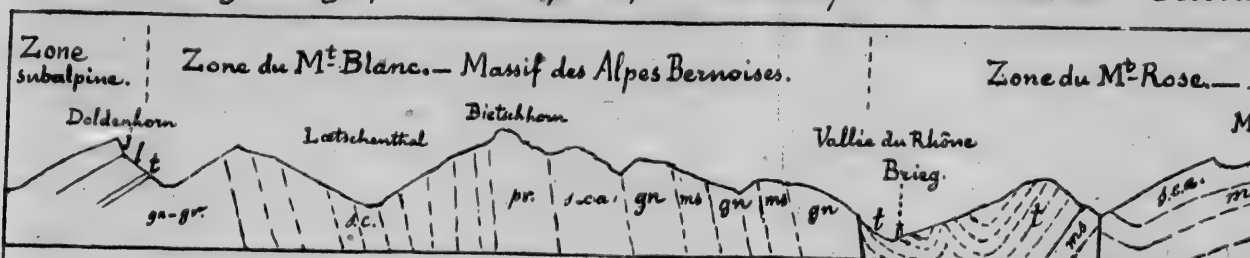 Zone
subalpine.
Zone du Mt Blanc. — Massif des Alpes Bernoises.
Zone du Mt Rose. —
Doldenhorn
Lœtschenthal
Bietschhorn
Vallée du Rhône
Brieg.
M
j l t
gn-gr.
s.c.
pr. s.c.a. gn ms gn ms gn
t t ms
s.c.a. m
m